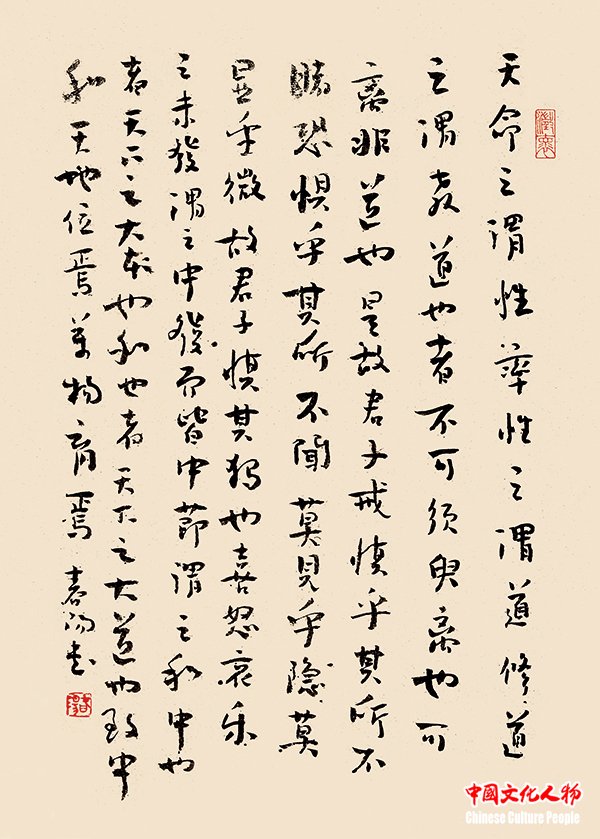 天命之謂性率性之謂道修道
之謂教道也者不可須臾離也可
離非道也是故君子戒慎乎其所不
睹恐懼乎其所不聞莫見乎隱莫
顯乎微故君子慎其獨也喜怒哀樂
之未發謂之中發而皆中節謂之和中也
者天下之大本也和也者天下之大道也致中
和天地位焉萬物育焉
中國文化人物
Chinese Culture People